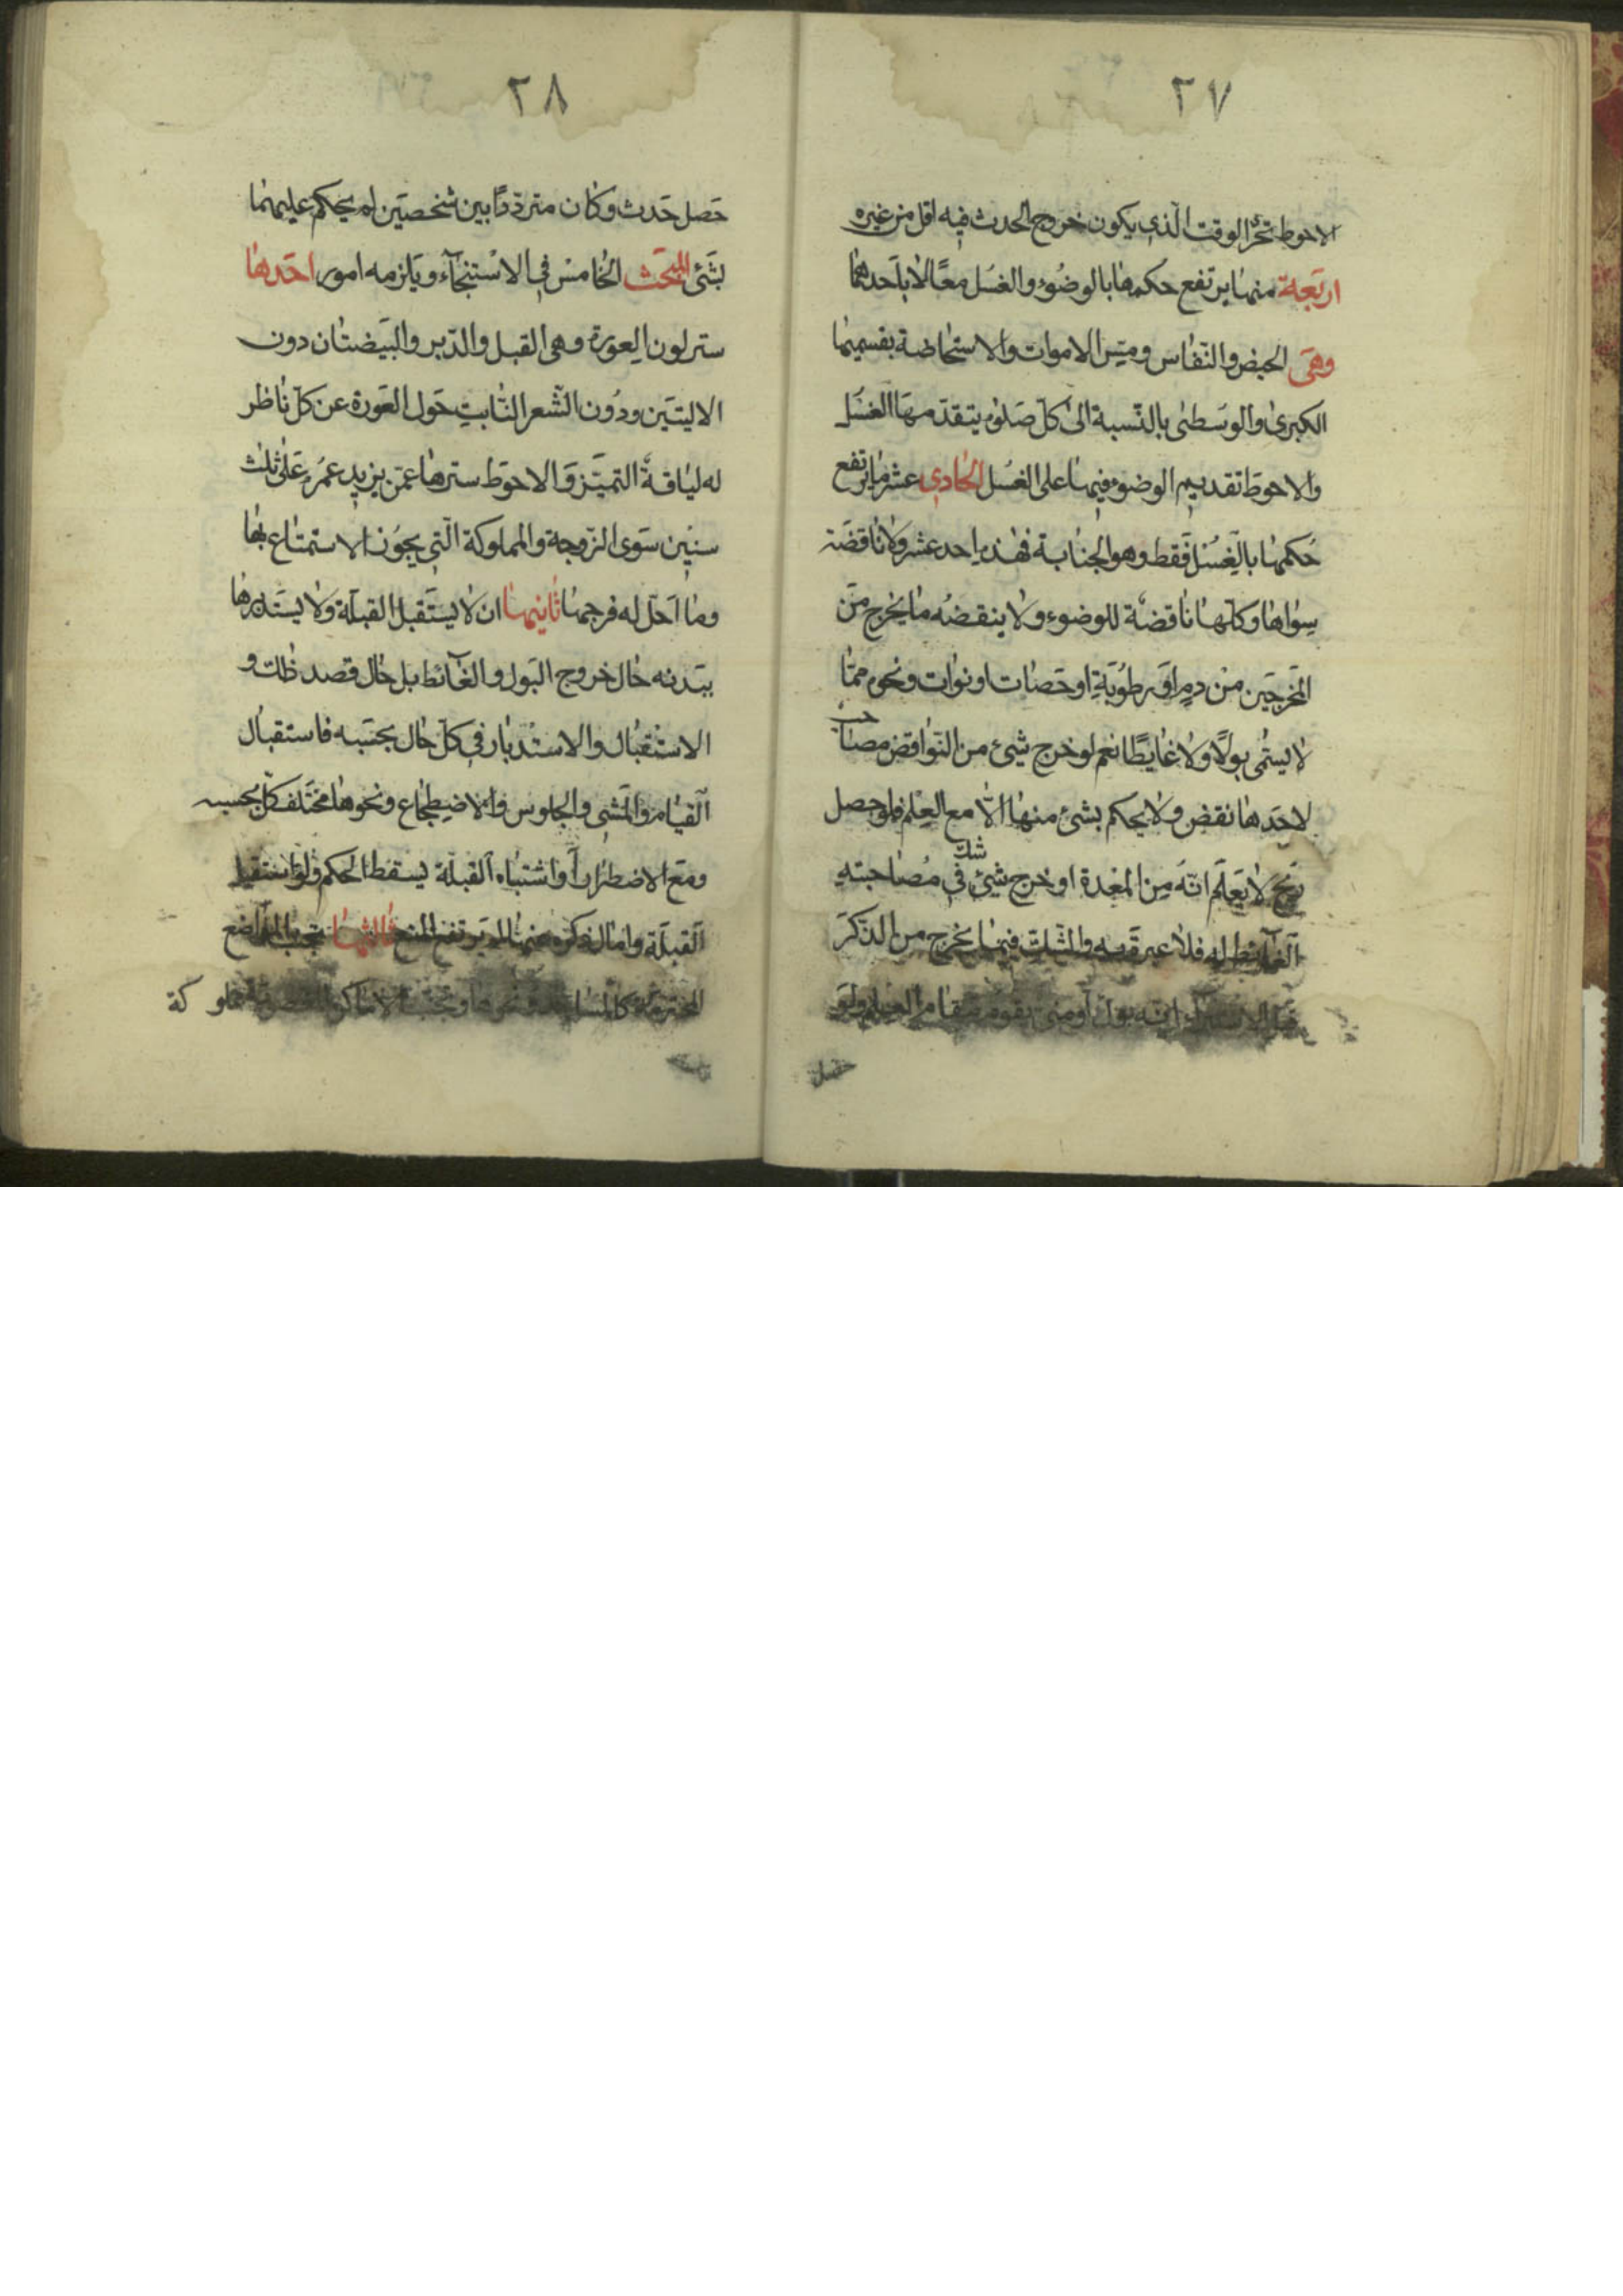 ٢٧
الاحوط تحرّ الوقت الّذي يكون خروج الحدث فيه اقل من غيره
اربعة منها يرتفع حكمها بالوضوء والغسل معًا لا باحدهما
وهي الحيض والنّفاس ومسّ الاموات والاستحاضة بقسميها
الكبرى والوسطى بالنّسبة الى كلّ صلوة يتقدّمها الغسل
والاحوط تقديم الوضوء فيها على الغسل الحادي عشر ما يرتفع
حكمها بالغسل فقط وهو الجنابة فهذه احد عشر ولا ناقضة
سواها وكلّها ناقضة للوضوء ولا ينقضه ما يخرج من
المخرجين من دم او رطوبة او حصاة او نوات ونحوه ممّا
لا يسمّى بولًا ولا غايطًا نعم لو خرج شيئ من النّواقض مصاحب
لاحدها نقض ولا يحكم بشئ منها الّا مع العلم فلو حصل
ريح لا يعلم انّه من المعدة او خرج شيئ شك في مصاحبته
الغآئط له فلا عبرة به والشّكّ فيما يخرج من الذّكر
قبل الاستبراء انّه بول او مني يقوم مقام العلم ولو
حصل
٢٨
حصل حدث وكان متردّدًا بين شخصين لم يحكم عليهما
بشئ المبحث الخامس في الاستنجآء ويلزمه امور احدها
ستر لون العورة وهي القبل والدّبر والبيضتان دون
الاليتين ودون الشّعر النّابت حول العورة عن كلّ ناظر
له لياقة التميّز والاحوط سترها عمّن يزيد عمره على ثلث
سنين سوى الزّوجة والمملوكة الّتي يجوز الاستمتاع بها
وما احلّ له فرجها ثانيها ان لا يستقبل القبلة ولا يستدبرها
ببدنه حال خروج البول والغآئط بل حال قصد ذلك و
الاستقبال والاستدبار في كلّ حال بحسبه فاستقبال
القيام والمشي والجلوس والاضطجاع ونحوها مختلف كلّ بحسبه
ومع الاضطرار او اشتباه القبلة يسقط الحكم ولو استقبل
القبلة وامال ذكره عنها لم يرتفع المنع ثالثها تجنب المواضع
المحترمة كالمساجد ونحوها وتجنب الاماكن المملوكة